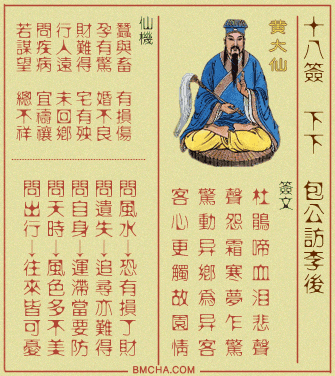 十八簽 下下 包公訪李後
黃大仙
簽文
杜鵑啼血淚悲聲
聲怨霜寒夢乍驚
驚動异鄉爲异客
客心更觸故園情
仙機
蠶與畜 有損傷
孕有驚 婚不良
財難得 宅有殃
行人遠 未回鄉
問疾病 宜禱禳
若謀望 總不祥
問風水↓恐有損了財
問遺失↓追尋亦難得
問自身↓運滯當要防
問天時↓風色多不美
問出行↓往來皆可憂
BMCHA.COM